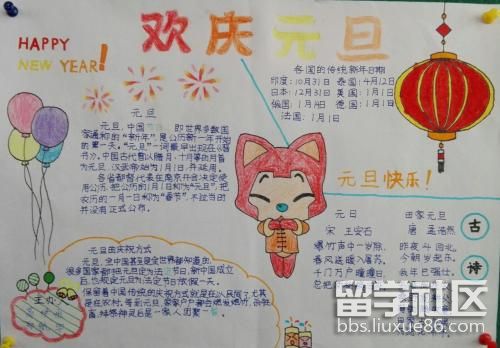 HAPPY
NEW YEAR!
欢庆元旦
各国的传统新年日期
印度:10月31日 泰国:4月12日
日本:12月31日 美国:1月1日
俄国:1月14日 德国:1月1日
法国:1月1日
元旦
元旦,中国 即世界多数国
家通称的“新年”,是公历新一年开始
的第一天。“元旦”一词最早出现在《晋
书》。中国古代曾以腊月、十月等的月首
为元旦,汉武帝始为1月1日,并延用。
各省都督代表在南京开会决定使
用公历,把公历的1月1日称为“元旦”,把
农历的一月一日称为“春节”,不过当时
并没有正式公布。
元旦快乐!
元日
宋 王安石
爆竹声中一岁除,
春风送暖入屠苏。
千门万户曈曈日,
总把
田家元旦
唐 孟浩然
昨夜斗回北,
今朝岁起东。
我年已强仕,
古诗
元旦的庆祝方式
元旦,全中国甚至是全世界都知道的,
很多国家都把元旦定为法 节日,新中国成立
后,也规定元旦为法定节日放假一天。
保留着中国传统的庆祝方式就是在以民间,尤其
是在农村,每到元旦,家家户户都会燃放爆竹,杀鸡宰
鹅,拜祭神灵后是一家人团聚
主办
留学社区
bbs.liuxue86.com